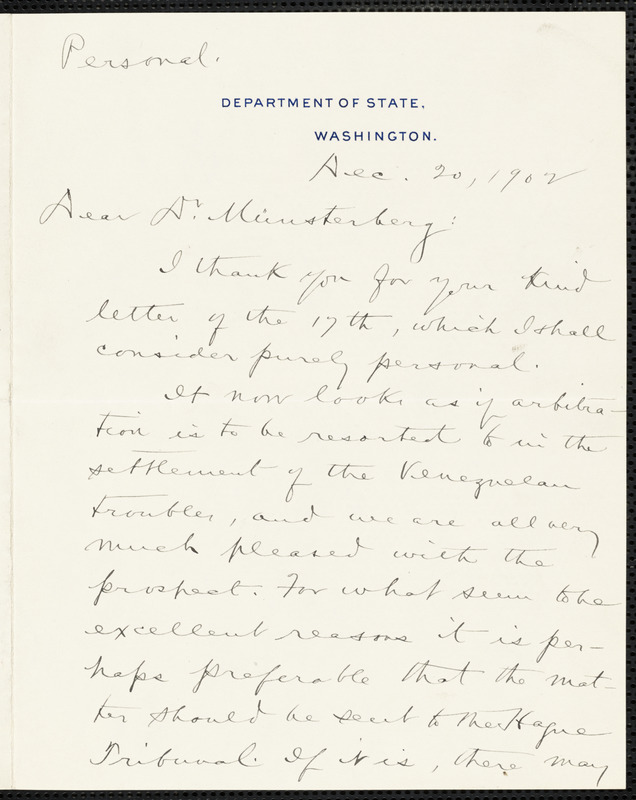 Personal.
DEPARTMENT OF STATE,
WASHINGTON.
Dec. 20, 1902
Dear Dr. Münsterberg:
I thank you for your kind
letter of the 17th, which I shall
consider purely personal.
It now looks as if arbitra-
tion is to be resorted to in the
settlement of the Venezuelan
troubles, and we are all very
much pleased with the
prospect. For what seem to be
excellent reasons it is per-
haps preferable that the mat-
ter should be sent to the Hague
Tribunal. If it is, there may